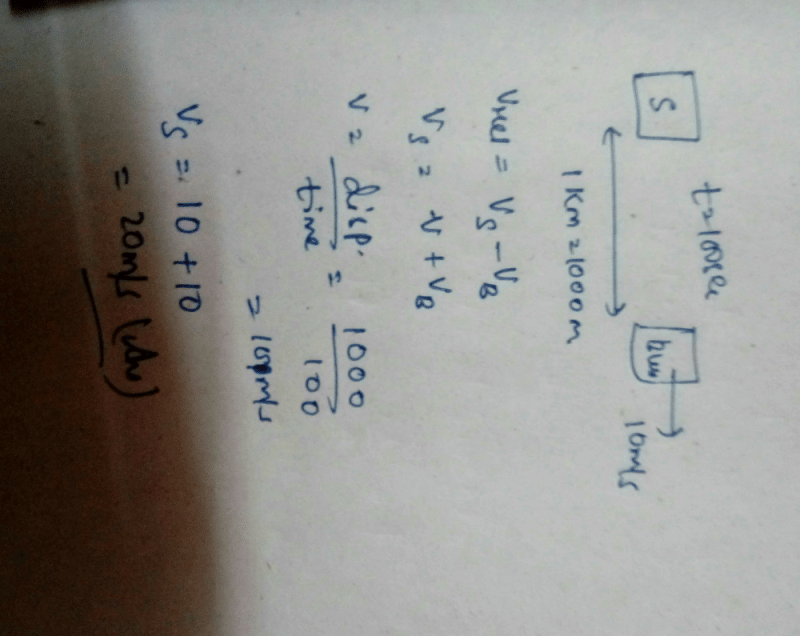 t=100sec
S
bus
10m/s
1 Km = 1000 m
Vrel = VS - VB
VS = v + VB
v = disp. / time = 1000 / 100
= 10m/s
VS = 10 + 10
= 20m/s